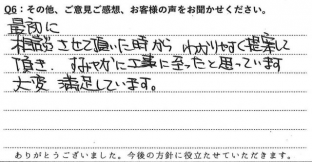 Q6：その他、ご意見ご感想、お客様の声をお聞かせください。
最初に
相談させて頂いた時から わかりやすく提案して
頂き、すみやかに工事に至ったと思っています
大変 満足しています。
ありがとうございました。今後の方針に役立たせていただきます。